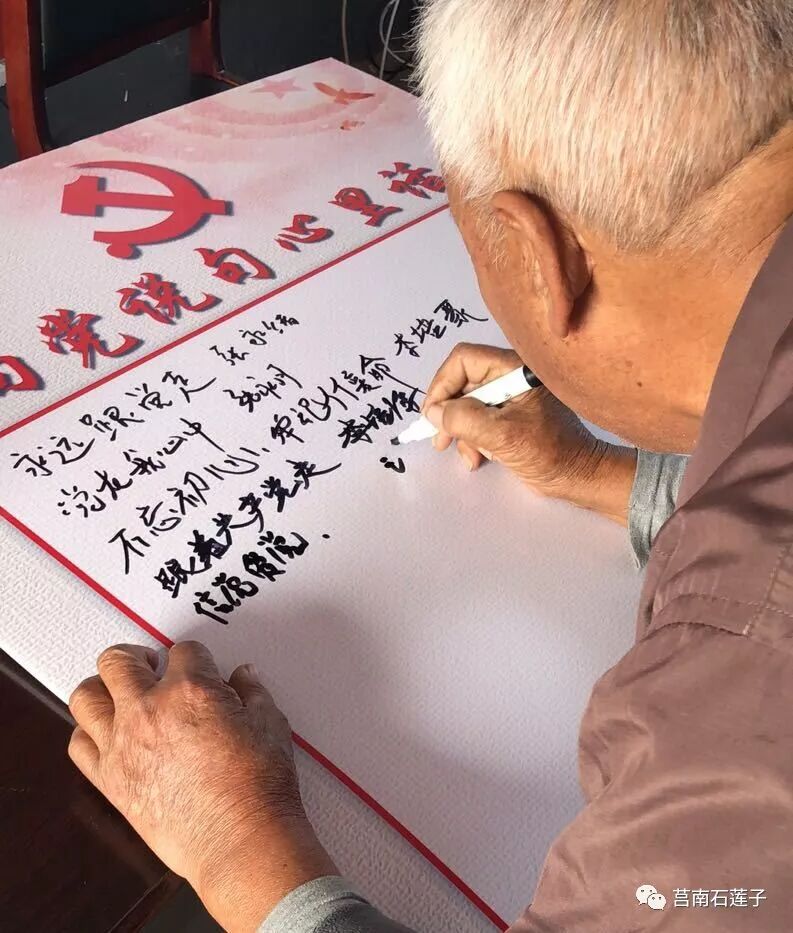 向党说句心里话
永远跟党走 张永绪
党在我心中
不忘初心、牢记使命 李培聚
跟着共产党走 李培
信党
莒南石莲子